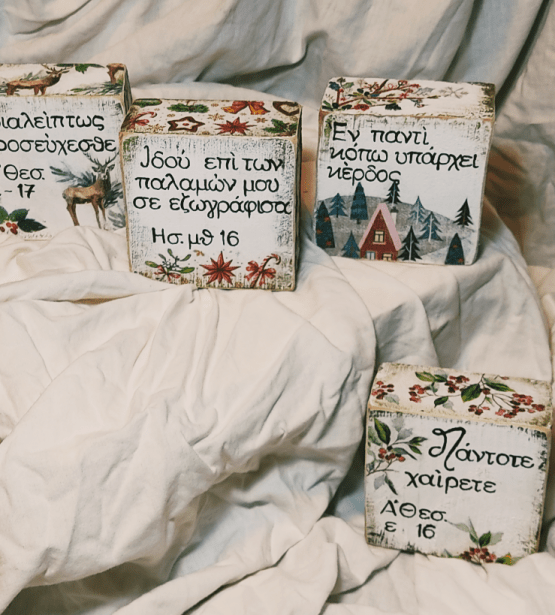 διαλείπτως
προσεύχεσθε
Α΄Θεσ.
ε-17
Ἰδού ἐπὶ των
παλαμών μου
σε εζωγράφισα
Ησ. μθ 16
Εν παντί
κόπω υπάρχει
κέρδος
Πάντοτε
χαίρετε
Α΄Θεσ.
ε 16